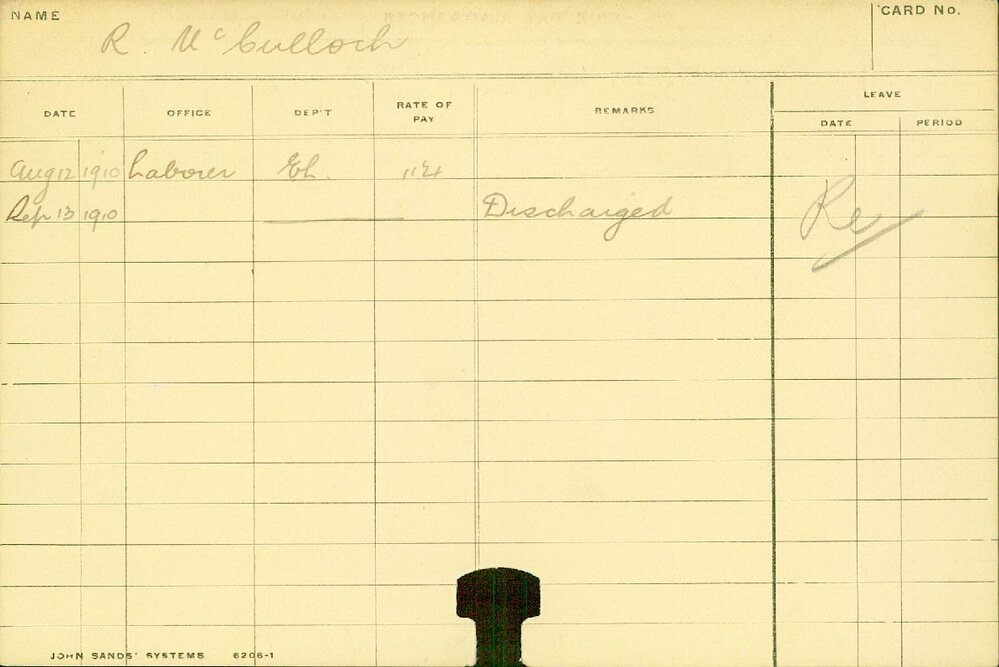 NAME CARD No.
R. McCulloch
DATE OFFICE DEP'T RATE OF PAY REMARKS LEAVE
DATE PERIOD
Aug 12 1910 Laborer Eh.
Sep 13 1910 Discharged Re
JOHN SANDS' SYSTEMS 6206-1